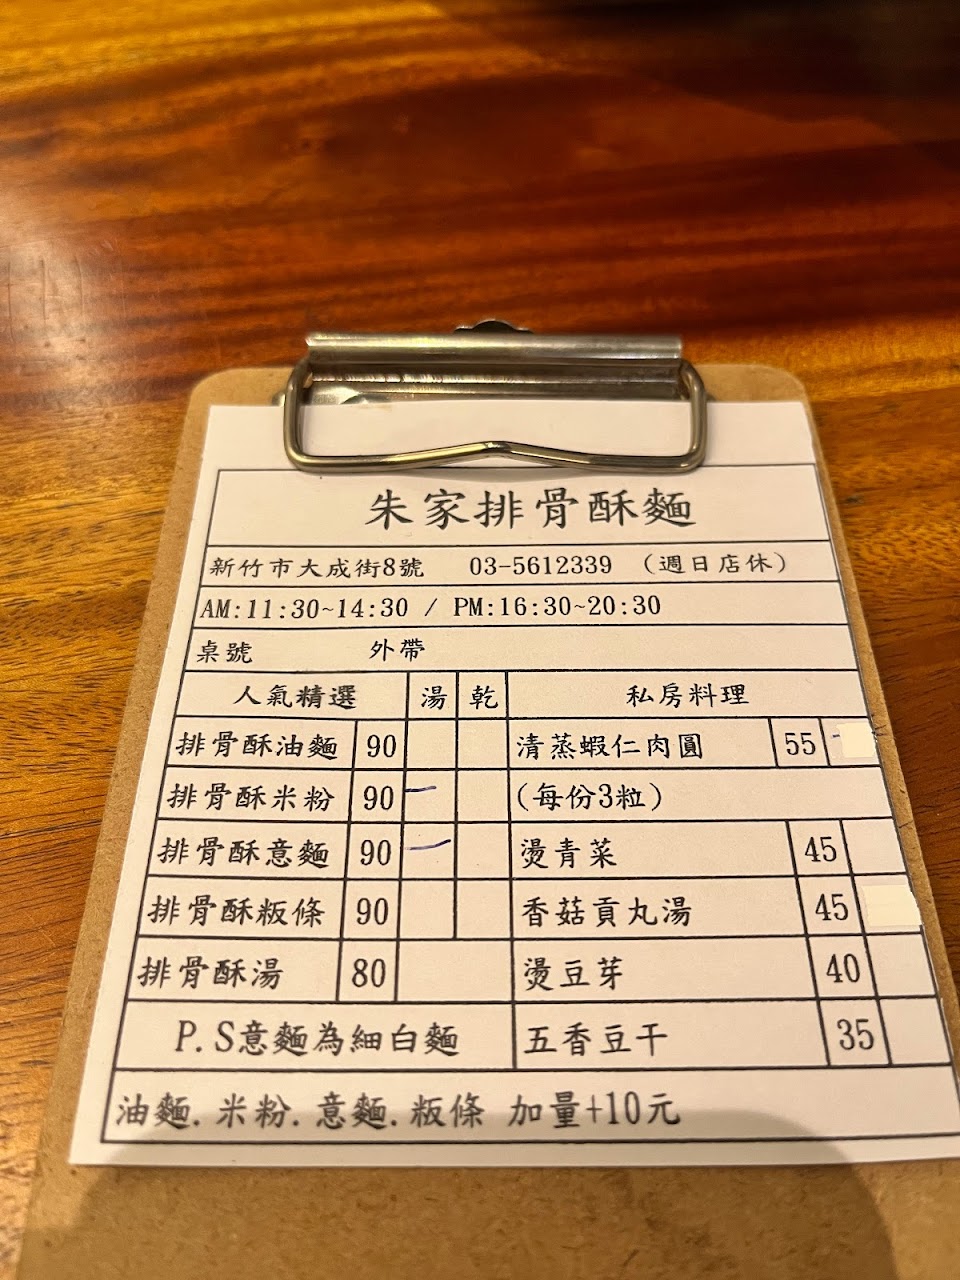 朱家排骨酥麵
新竹市大成街8號 03-5612339 (週日店休)
AM:11:30~14:30 / PM:16:30~20:30
桌號 外帶
人氣精選 湯 乾 私房料理
排骨酥油麵 90 清蒸蝦仁肉圓 55
排骨酥米粉 90 (每份3粒)
排骨酥意麵 90 燙青菜 45
排骨酥粄條 90 香菇貢丸湯 45
排骨酥湯 80 燙豆芽 40
P.S意麵為細白麵 五香豆干 35
油麵.米粉.意麵.粄條 加量+10元